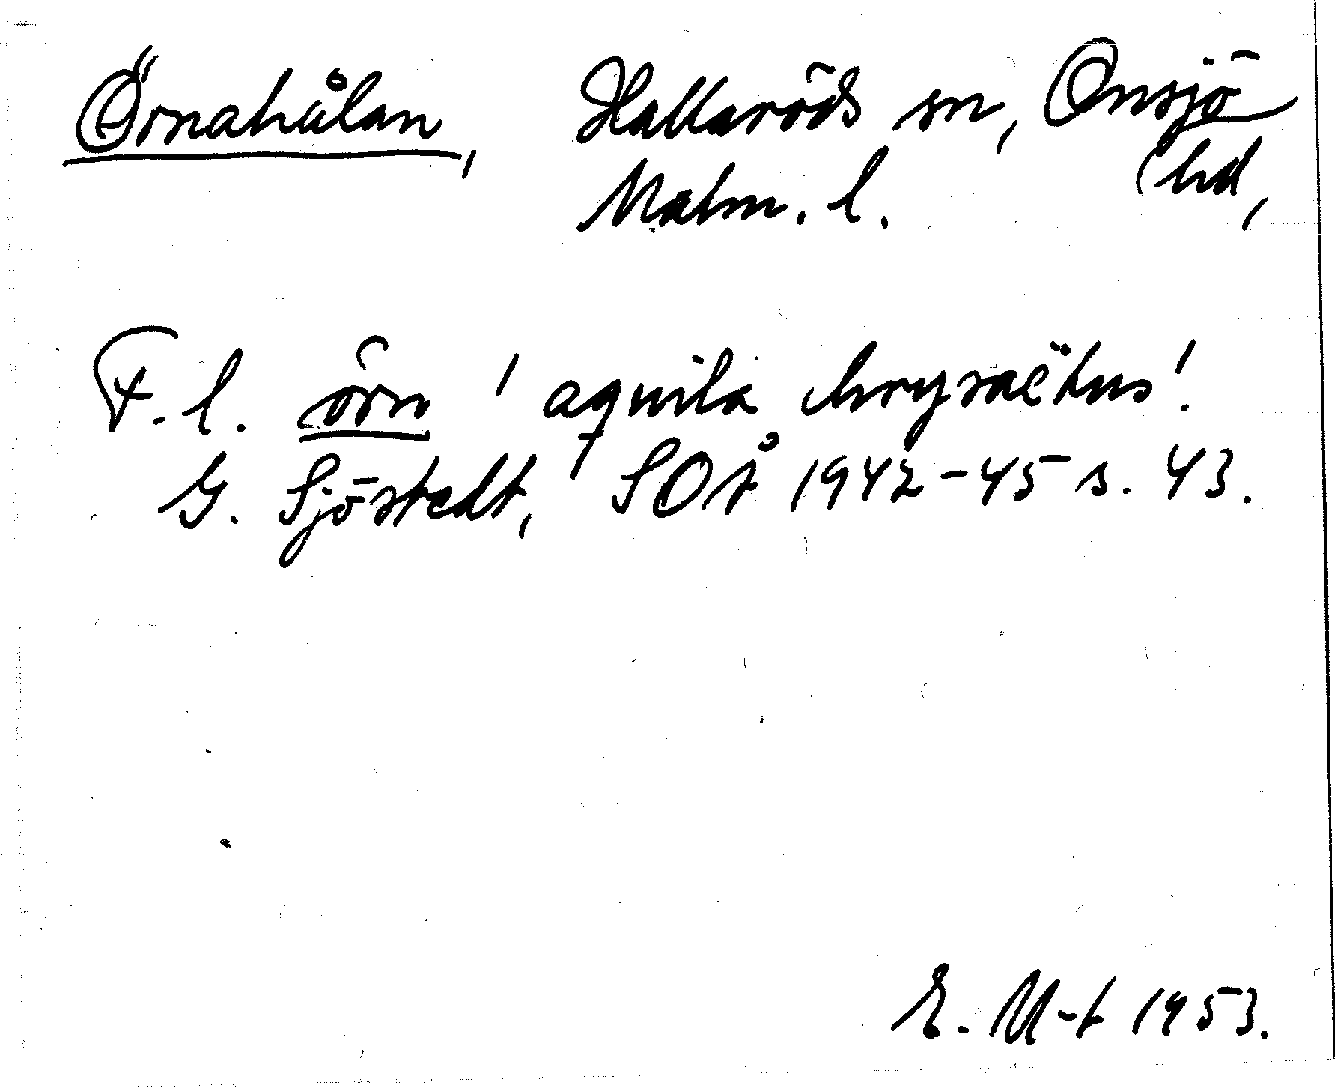 Örnahålan, Hallaröds sn, Onsjö
Malm. l. (hd,
F. l. örn 'aquila chrysaëtus'.
G. Sjöstedt, SOÅ 1942-45 s. 43.
E. M-t 1953.